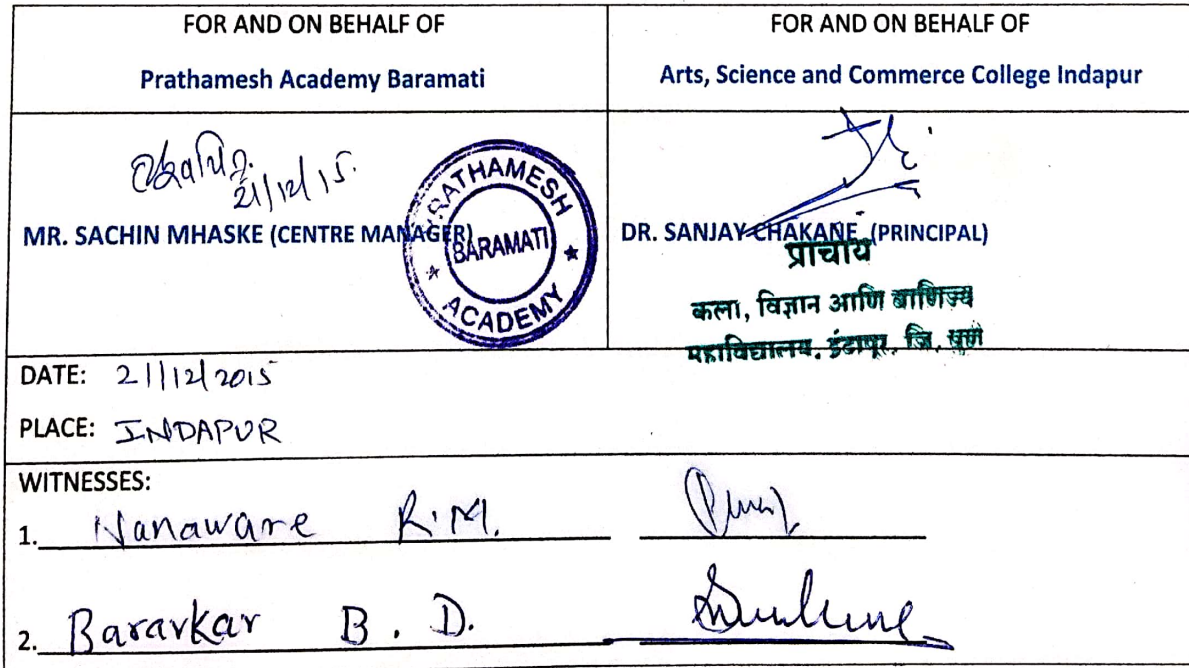 FOR AND ON BEHALF OF
Prathamesh Academy Baramati
FOR AND ON BEHALF OF
Arts, Science and Commerce College Indapur
21/12/15.
MR. SACHIN MHASKE (CENTRE MANAGER)
PRATHAMESH
BARAMATI
ACADEMY
DR. SANJAY CHAKANE (PRINCIPAL)
प्राचार्य
कला, विज्ञान आणि वाणिज्य
महाविद्यालय, इंदापूर, जि. पुणे
DATE: 21/12/2015
PLACE: INDAPUR
WITNESSES:
1. Nanaware R.M.
2. Bararkar B. D.